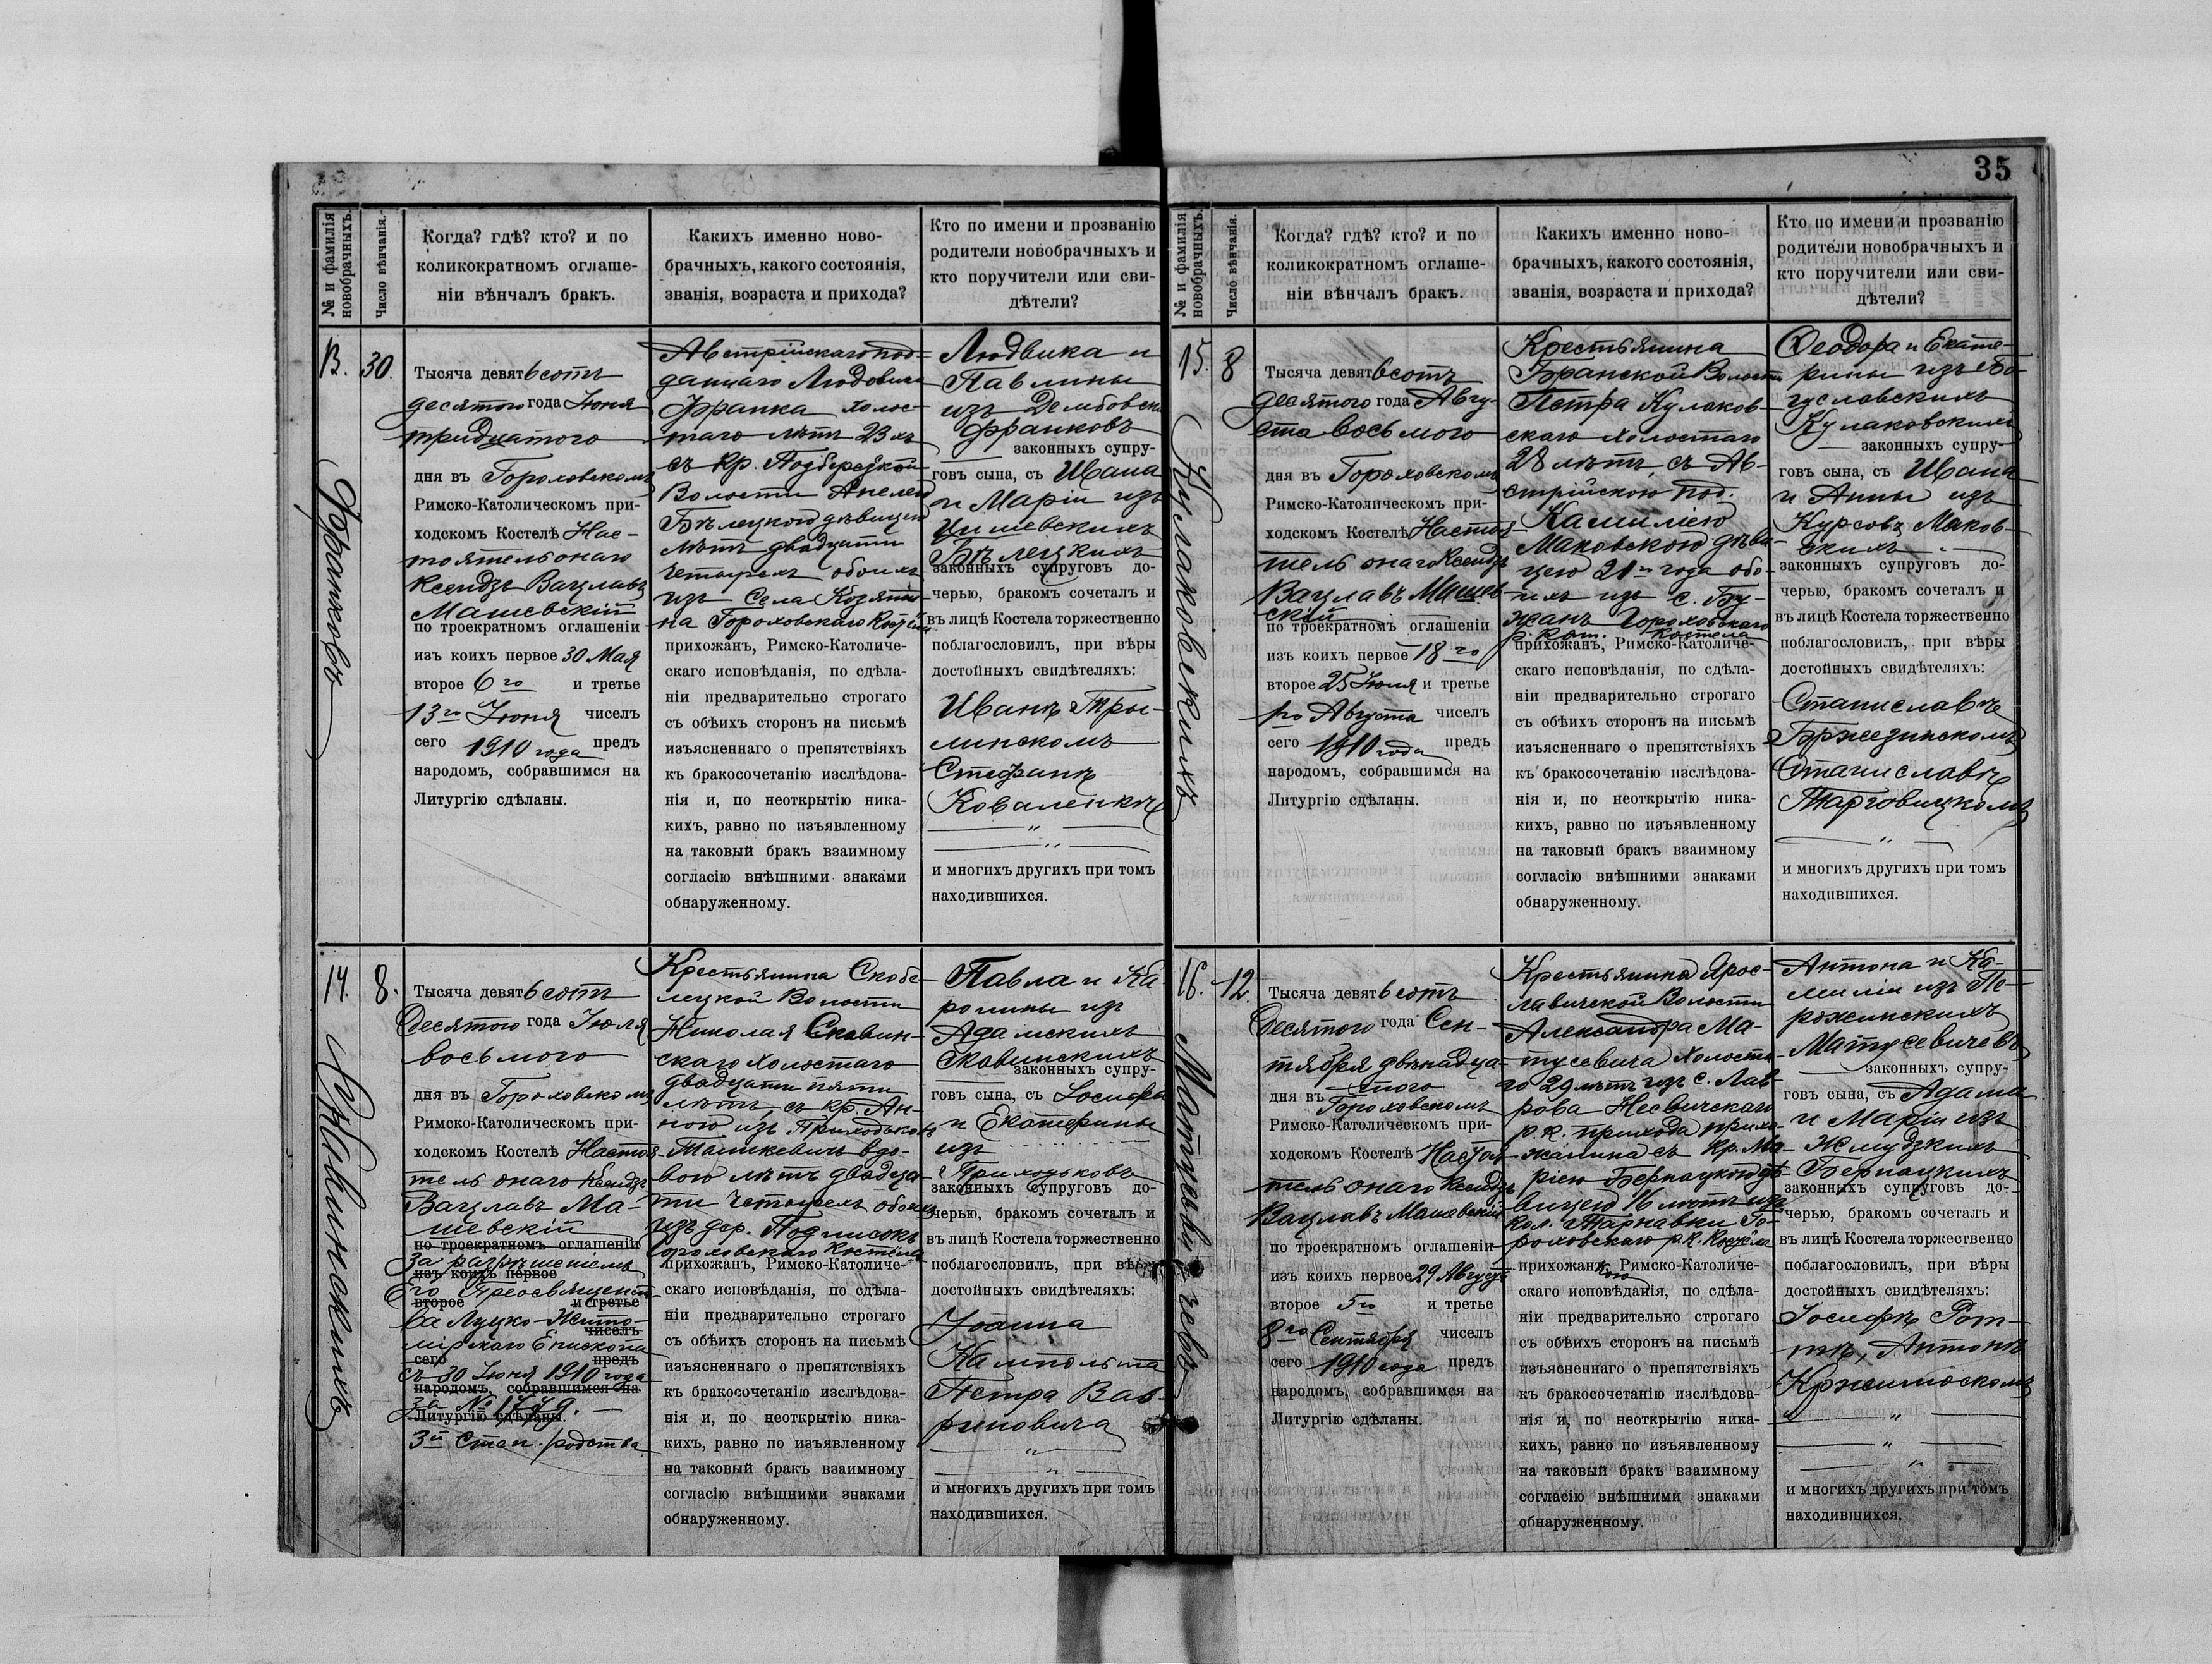 35
№ и фамилія новобрачныхъ.
Число вѣнчанія.
Когда? гдѣ? кто? и по
коликократномъ оглаше-
ніи вѣнчалъ бракъ.
Какихъ именно ново-
брачныхъ, какого состоянія,
званія, возраста и прихода?
Кто по имени и прозванію
родители новобрачныхъ и
кто поручители или сви-
дѣтели?
13.
Франковъ
30.
Тысяча девятьсотъ
десятого года Іюня
тридцатого
дня въ Гороховскомъ
Римско-Католическомъ при-
ходскомъ Костелѣ Нас-
тоятель онаго
Ксендзъ Вацлавъ
Машевскій
по троекратномъ оглашеніи
изъ коихъ первое 30 Мая
второе 6го и третье
13го Іюня чиселъ
сего 1910 года предъ
народомъ, собравшимся на
Литургію сдѣланы.
Австрійскаго под-
даннаго Людовика
Франка холос-
таго лѣтъ 23хъ
съ кр. Подберезкой
Волости Анелею
Бѣлецкою дѣвицею
лѣтъ двадцати
четырехъ обоихъ
изъ Села Козятин-
на Гороховскаго Костела
прихожанъ, Римско-Католиче-
скаго исповѣданія, по сдѣла-
ніи предварительно строгаго
съ обѣихъ сторонъ на письмѣ
изъясненнаго о препятствіяхъ
къ бракосочетанію изслѣдова-
нія и, по неоткрытію ника-
кихъ, равно по изъявленному
на таковый бракъ взаимному
согласію внѣшними знаками
обнаруженному.
Людвика и
Павлины
изъ Дембовских
Франковъ
законныхъ супру-
говъ сына, съ Ивана
и Маріи изъ
Бѣлецкихъ
законныхъ супруговъ до-
черью, бракомъ сочеталъ и
въ лицѣ Костела торжественно
поблагословилъ, при вѣры
достойныхъ свидѣтеляхъ:
Иванѣ Тры-
линскомъ
Стефанѣ
Коваленкѣ
и многихъ другихъ при томъ
находившихся.
14.
Сковинскихъ
8.
Тысяча девятьсотъ
Десятого года Іюля
восьмого
дня въ Гороховскомъ
Римско-Католическомъ при-
ходскомъ Костелѣ Настоя-
тель онаго Ксендзъ
Вацлавъ Ма-
шевскій
по троекратномъ оглашеніи
За разрѣшеніемъ
изъ коихъ первое
Его Преосвященст-
второе и третье
ва Луцко-Жито-
чиселъ
мірскаго Епископа
сего предъ
съ 30 Іюня 1910 года
народомъ, собравшимся на
за № 1779.
Литургію сдѣланы.
3й Степ. родства
Крестьянина Скобе-
лецкой Волости
Николая Сковин-
скаго холостаго
двадцати пяти
лѣтъ, съ кр. Ан-
ною изъ Приходьковъ
Ташкевичъ вдо-
вою лѣтъ двадца-
ти четырехъ обоихъ
изъ дер. Подлисокъ
Гороховскаго Костёла
прихожанъ, Римско-Католиче-
скаго исповѣданія, по сдѣла-
ніи предварительно строгаго
съ обѣихъ сторонъ на письмѣ
изъясненнаго о препятствіяхъ
къ бракосочетанію изслѣдова-
нія и, по неоткрытію ника-
кихъ, равно по изъявленному
на таковый бракъ взаимному
согласію внѣшними знаками
обнаруженному.
Павла и Ка-
ролины изъ
Адамскихъ
Сковинскихъ
законныхъ супру-
говъ сына, съ Іосифа
и Екатерины
изъ
Приходьковъ
законныхъ супруговъ до-
черью, бракомъ сочеталъ и
въ лицѣ Костела торжественно
поблагословилъ, при вѣры
достойныхъ свидѣтеляхъ:
Іоанна
Петра Вав-
риновича
и многихъ другихъ при томъ
находившихся.
№ и фамилія новобрачныхъ.
Число вѣнчанія.
Когда? гдѣ? кто? и по
коликократномъ оглаше-
ніи вѣнчалъ бракъ.
Какихъ именно ново-
брачныхъ, какого состоянія,
званія, возраста и прихода?
Кто по имени и прозванію
родители новобрачныхъ и
кто поручители или сви-
дѣтели?
15.
Кулаковскихъ
8
Тысяча девятьсотъ
десятого года Авгу-
ста восьмого
дня въ Гороховскомъ
Римско-Католическомъ при-
ходскомъ Костелѣ Настоя-
тель онаго Ксендзъ
Вацлавъ Машев-
скій
по троекратномъ оглашеніи
изъ коихъ первое 18го
второе 25 Іюля и третье
1го Августа чиселъ
сего 1910 года предъ
народомъ, собравшимся на
Литургію сдѣланы.
Крестьянина
Бранской Волости
Петра Кулаков-
скаго холостаго
28 лѣтъ, съ Ав-
стрійскою под.
Камиліею
Маковскою дѣви-
цею 21го года обо-
ихъ изъ с. Бу-
жанъ Гороховскаго
р. кат. Костела
прихожанъ, Римско-Католиче-
скаго исповѣданія, по сдѣла-
ніи предварительно строгаго
съ обѣихъ сторонъ на письмѣ
изъясненнаго о препятствіяхъ
къ бракосочетанію изслѣдова-
нія и, по неоткрытію ника-
кихъ, равно по изъявленному
на таковый бракъ взаимному
согласію внѣшними знаками
обнаруженному.
Ѳеодора и Екате-
рины изъ Бо-
гуславскихъ
Кулаковскихъ
законныхъ супру-
говъ сына, съ Ивана
и Анны изъ
Курсовъ Маков-
скихъ
законныхъ супруговъ до-
черью, бракомъ сочеталъ и
въ лицѣ Костела торжественно
поблагословилъ, при вѣры
достойныхъ свидѣтеляхъ:
Станиславѣ
Бржезинскомъ
Станиславѣ
Тарговицкомъ
и многихъ другихъ при томъ
находившихся.
16.
Матусевичевъ
12.
Тысяча девятьсотъ
Десятого года Сен-
тября двѣнадца-
того
дня въ Гороховскомъ
Римско-Католическомъ при-
ходскомъ Костелѣ Настоя-
тель онаго Ксендзъ
Вацлавъ Машевскій
по троекратномъ оглашеніи
изъ коихъ первое 29 Августа
второе 5го и третье
8го Сентября чиселъ
сего 1910 года предъ
народомъ, собравшимся на
Литургію сдѣланы.
Крестьянина Ярос-
лавичской Волости
Александра Ма-
тусевича холоста-
го 29 лѣтъ изъ с. Лав-
рова Несвичскаго
р. к. прихода прихо-
жанина съ кр. Ма-
ріею Бернацкою дѣ-
вицею 16 лѣтъ изъ
Кол. Тарнавки Го-
роховскаго р. к. Костёла
прихожанкою Римско-Католиче-
скаго исповѣданія, по сдѣла-
ніи предварительно строгаго
съ обѣихъ сторонъ на письмѣ
изъясненнаго о препятствіяхъ
къ бракосочетанію изслѣдова-
нія и, по неоткрытію ника-
кихъ, равно по изъявленному
на таковый бракъ взаимному
согласію внѣшними знаками
обнаруженному.
Антона и Ка-
миліи изъ Пе-
рожинскихъ
Матусевичевъ
законныхъ супру-
говъ сына, съ Адама
и Маріи изъ
Жмудзкихъ
Бернацкихъ
законныхъ супруговъ до-
черью, бракомъ сочеталъ и
въ лицѣ Костела торжественно
поблагословилъ, при вѣры
достойныхъ свидѣтеляхъ:
Іосифѣ Рот-
тѣ, Антонѣ
и многихъ другихъ при томъ
находившихся.